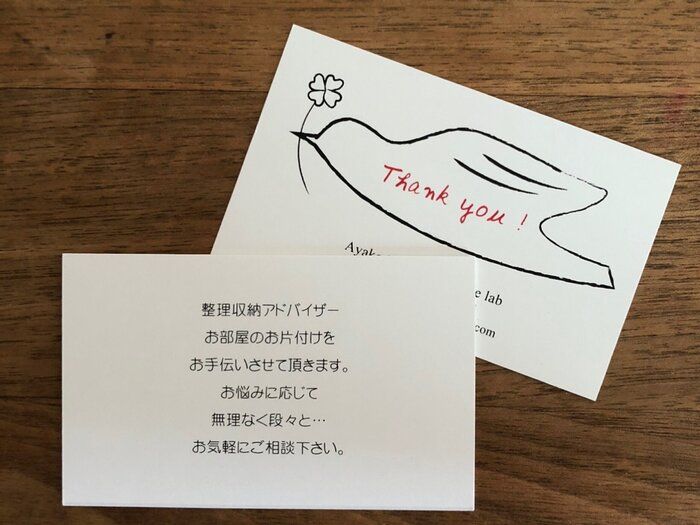 Thank you!
Ayak
e lab
.com
整理収納アドバイザー
お部屋のお片付けを
お手伝いさせて頂きます。
お悩みに応じて
無理なく段々と…
お気軽にご相談下さい。